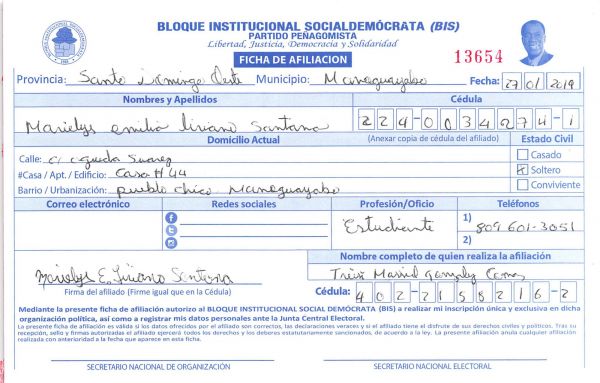 BLOQUE INSTITUCIONAL SOCIALDEMÓCRATA (BIS)
PARTIDO PEÑAGOMISTA
Libertad, Justicia, Democracia y Solidaridad
FICHA DE AFILIACION
13654
Provincia: Santo Domingo Oeste Municipio: Manoguayabo Fecha: 27/01/2019
Nombres y Apellidos Cédula
Marielys emilia liriano Santana 224-0034274-1
Domicilio Actual (Anexar copia de cédula del afiliado) Estado Civil
Calle: c/ Suarez Casado
#Casa / Apt. / Edificio: Casa # 44 Soltero
Barrio / Urbanización: pueblo chico Manoguayabo Conviviente
Correo electrónico Redes sociales Profesión/Oficio Teléfonos
Estudiante 1) 809 601-3051
2)
Nombre completo de quien realiza la afiliación
Marielys E. Liriano Santana
Firma del afiliado (Firme igual que en la Cédula) Cédula: 402-2158216-2
Mediante la presente ficha de afiliación autorizo al BLOQUE INSTITUCIONAL SOCIAL DEMÓCRATA (BIS) a realizar mi inscripción única y exclusiva en dicha
organización política, así como a registrar mis datos personales ante la Junta Central Electoral.
La presente ficha de afiliación es válida si los datos ofrecidos por el afiliado son correctos, las declaraciones veraces y si el afiliado tiene el disfrute de sus derechos civiles y políticos. Tras su
recepción, sello y firmas autorizadas el afiliado ejercerá todos los derechos y los deberes estatutariamente sancionados, de acuerdo a la ley. La presente afiliación anula cualquier afiliación
realizada con anterioridad a la fecha que aparece en esta ficha.
SECRETARIO NACIONAL DE ORGANIZACIÓN SECRETARIO NACIONAL ELECTORAL